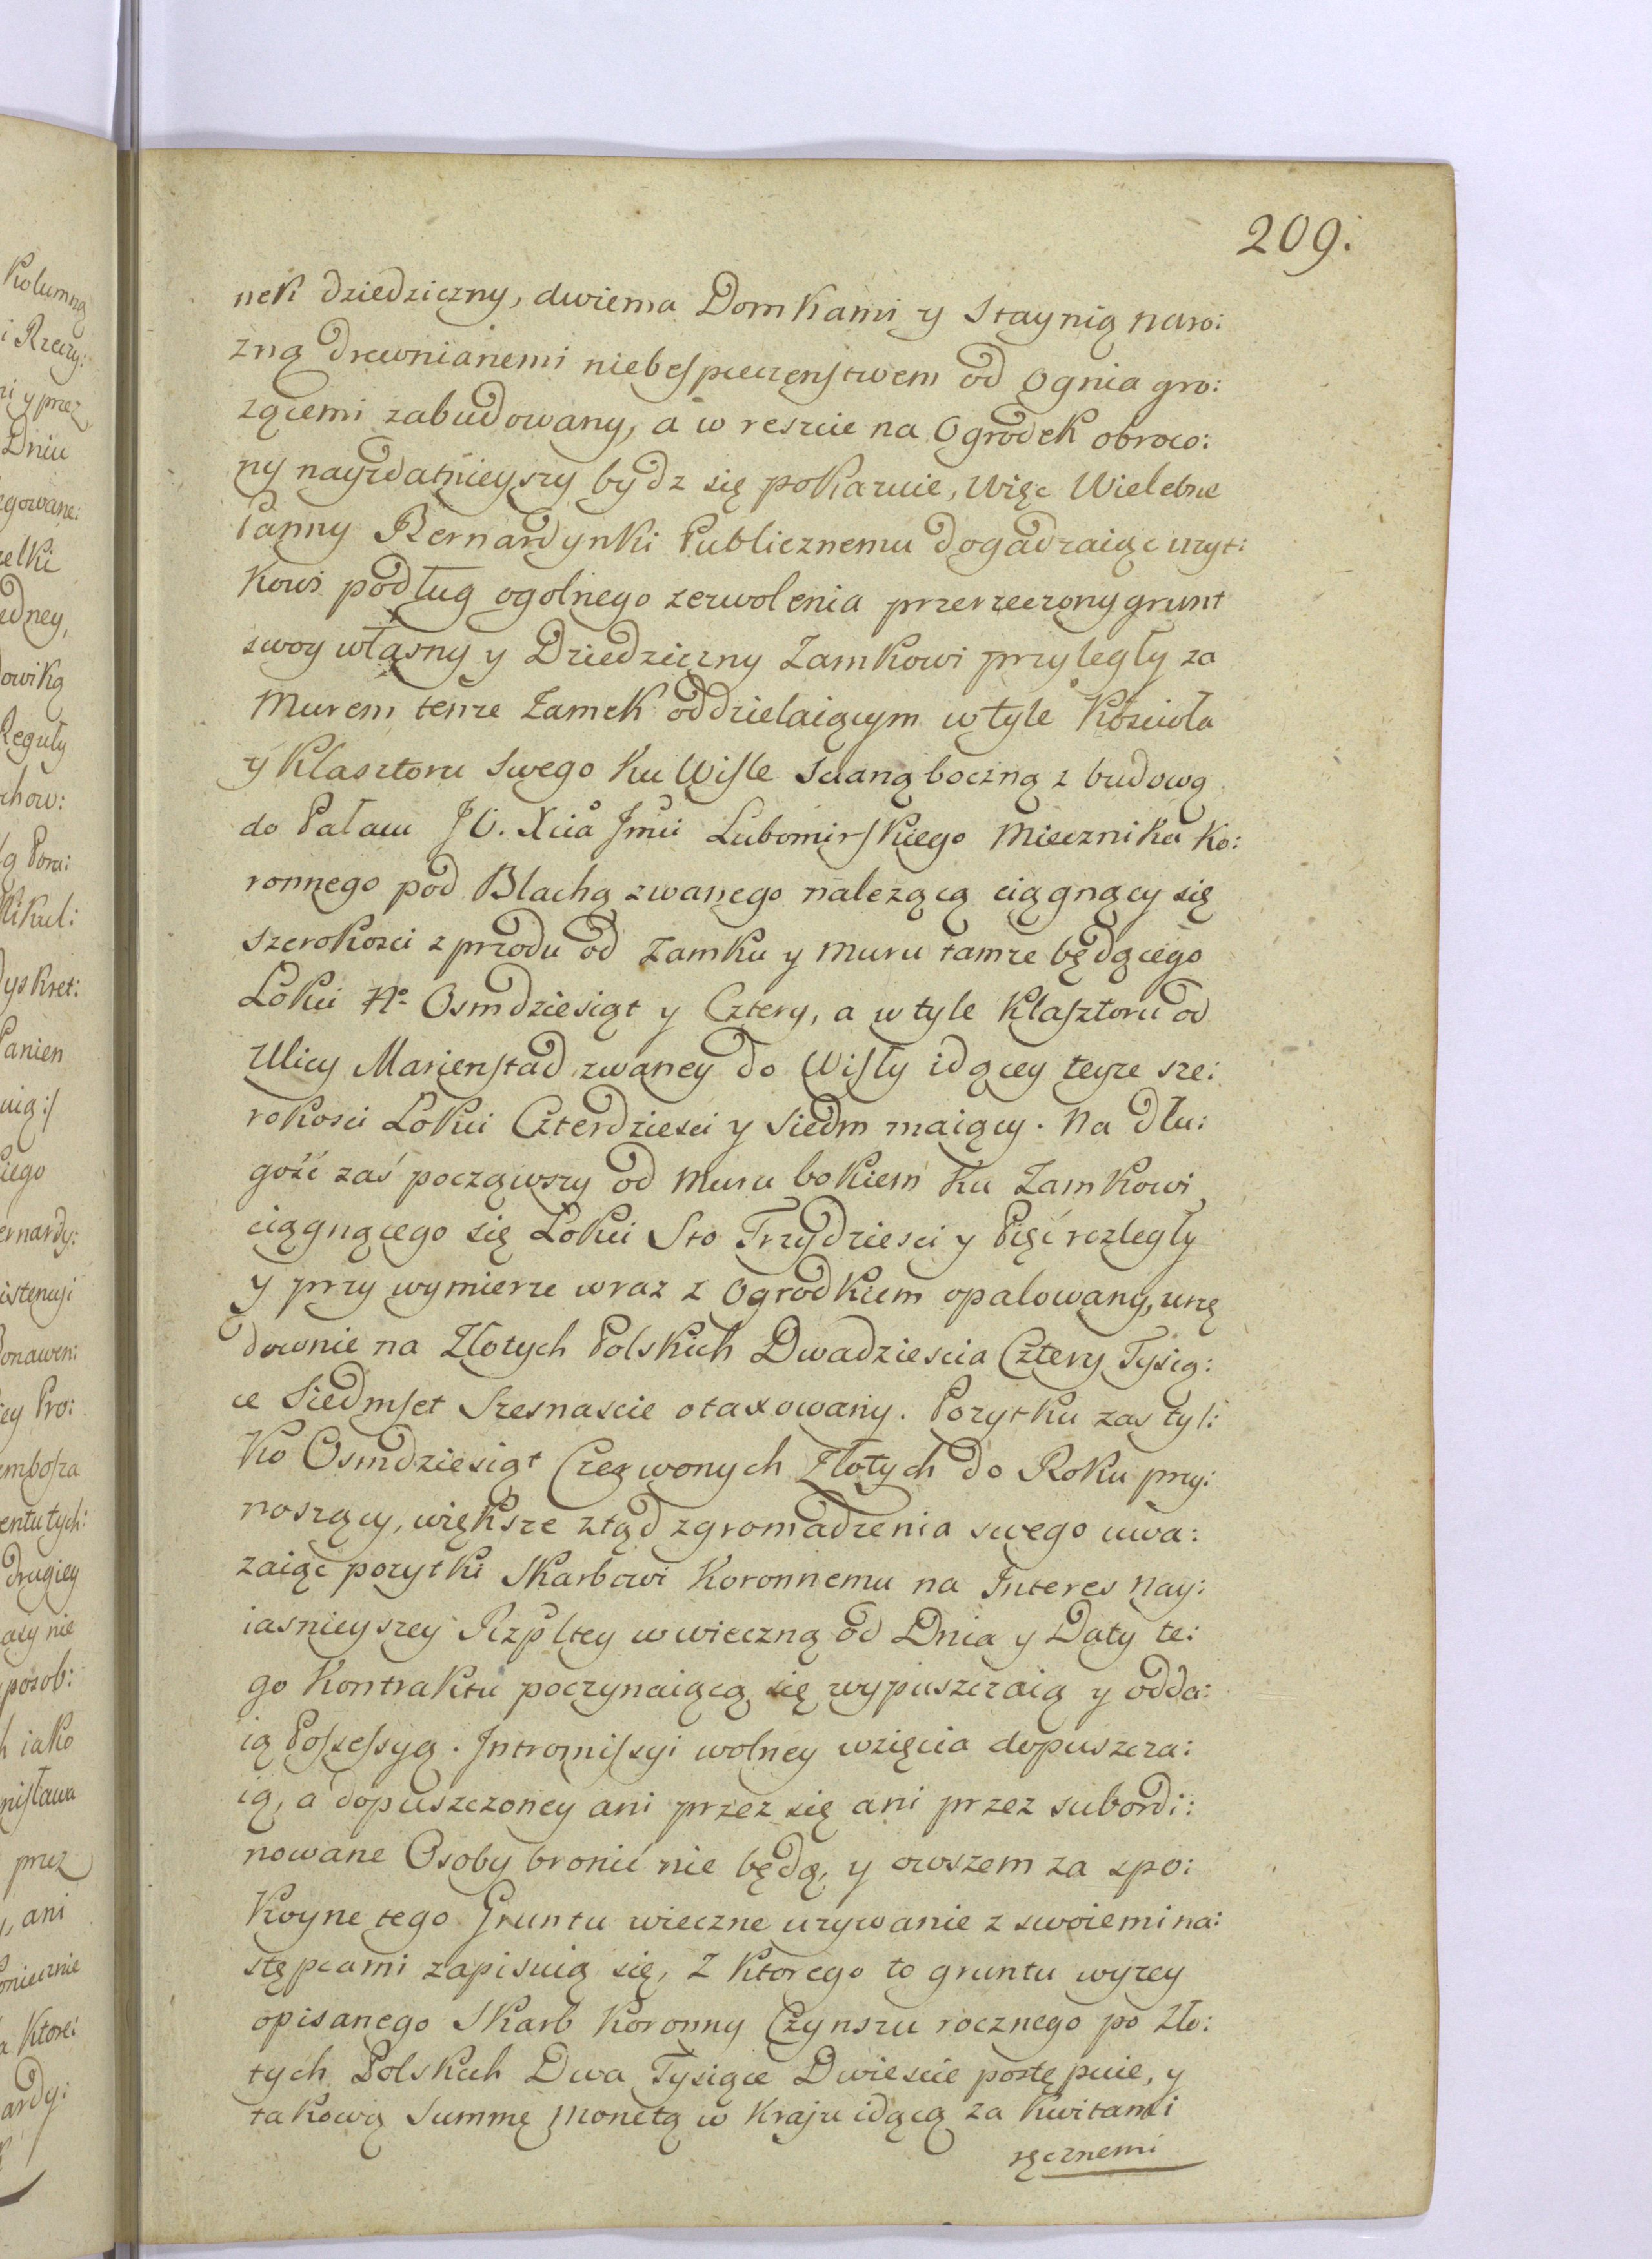 209.
nek dziedziczny, dwiema Domkami y Staynią naro:
zną drewnianemi niebespieczęnstwem od Ognia gro:
zącemi zabudowany, a w reszcie na Ogrodek obroco:
ny nayzdatnieyszy bydz się pokazuie, Więc Wielebne
Panny Bernardynki Publicznemu dogadzaiąc uzyt:
kowi podług ogolnego zezwolenia przerzeczony grunt
swoy własny y Dziedziczny Zamkowi przyległy za
Murem tenze Zamek oddzielaiącym w tyle Kościoła
y Klasztoru Swego ku Wisle Scianą boczną z budową
do Pałacu JO. Xcia Jmci Lubomirskiego Miecznika Ko:
ronnego pod Blachą zwanego nalezącą ciągnący się
szerokosci z przodu od Zamku y Muru tamze będącego
Łokci No Osmdziesiąt y Cztery, a w tyle Klasztoru od
Ulicy Marienstad zwaney do Wisły idącey teyze sze:
rokosci Łokci Czterdziesci y Siedm maiący. Na dłu:
gość zaś począwszy od Muru bokiem ku Zamkowi
ciągnącego się Łokci Sto Trzydziesci y Pięć rozległy
y przy wymierze wraz z Ogrodkiem opalowany, urzę
downie na Złotych Polskich Dwadziescia Cztery Tysią:
ce Siedmset Szesnascie otaxowany. Pozytku zas tyl:
ko Osmdziesiąt Czerwonych Złotych do Roku przy:
noszący, większe ztąd zgromadzenia swego uwa:
zaiąc pozytki Skarbowi Koronnemu na Interes Nay:
iasnieyszey Rzpltey w wieczną od Dnia y Daty te:
go Kontraktu poczynaiącą się wypuszczaią y odda:
ią Possessyą. Intromissyi wolney wzięcia dopuszcza:
ią, a dopuszczoney ani przez się ani przez subordi:
nowane Osoby bronić nie będą, y owszem za spo:
koyne tego Gruntu wieczne uzywanie z swoiemi na:
stępcami zapisuią się, Z ktorego to gruntu wyzey
opisanego Skarb Koronny Czynszu rocznego po Zło:
tych Polskich Dwa Tysiące Dwiescie postępuie, y
takową Summę Monetą w Kraju idącą za Kwitami
ręcznemi